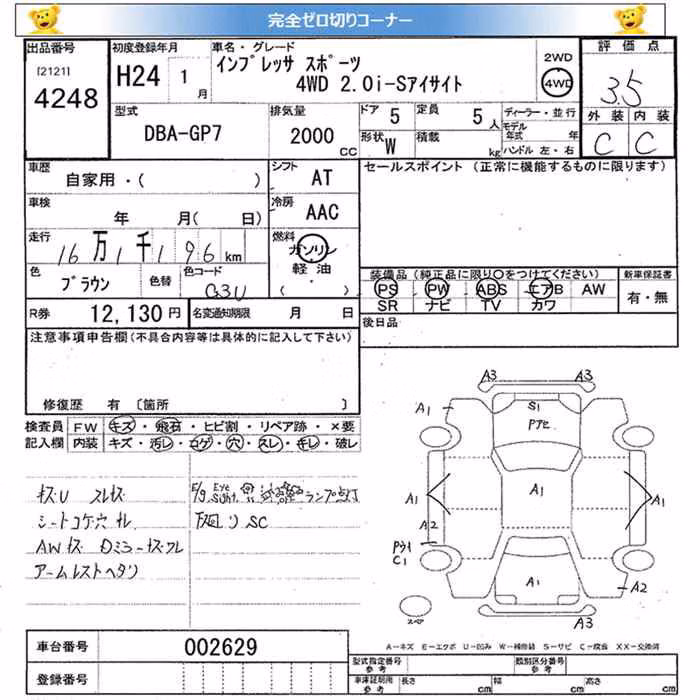 完全ゼロ切りコーナー
出品番号 初度登録年月 車名・グレード 2WD 評価点
[2121] 4248 H24 1月 インプレッサ スポーツ 4WD 2.0i-Sアイサイト 4WD 3.5
型式 排気量 ドア 5 定員 5人 ディーラー・並行 外装 内装
DBA-GP7 2000cc 形状 W 積載 kg モデル年式 年 C C
ハンドル 左・右
車歴 シフト セールスポイント (正常に機能するものに限ります)
自家用・( ) AT
車検 年 月( 日) 冷房 AAC
走行 16万1千196km 燃料 ガソリン
軽油
( )
色 ブラウン 色替 色コード G3U
装備品 (純正品に限り○をつけてください) 新車保証書
PS PW ABS エアB AW 有・無
SR ナビ TV カワ
R券 12,130円 名変通知期限 月 日 後日品
注意事項申告欄(不具合内容等は具体的に記入して下さい)
修復歴 有 〔箇所 〕
検査員 FW キズ・飛石・ヒビ割・リペア跡・×要
記入欄 内装 キズ・汚レ・コゲ・穴・スレ・キレ・破レ
キズU スレキズ
シートコゲ穴 キレ 下廻りSC
AWキズ Dミラーキズワレ
アームレストヘタリ
ランプ点灯
A3 A3
A1 S1
A1 A1 A1
A2
C1 A1 A2
スペア A3
A-キズ E-エクボ U-凹み W-補修跡 S-サビ C-腐食 XX-交換済
車台番号 002629
登録番号
型式指定番号 参考 類別区分番号 参考
車庫証明用 参考 長さ cm 幅 cm 高さ cm